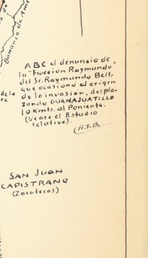 Barranca de
ABC el denuncio de
la "Fracción Raymundo"
del Sr. Raymundo Bell,
que ocasionó el origen
de la invasión, despla-
zando GUANAJUATILLO
10 Kmts. al Poniente.
(Vease el Estudio
relativo).
SAN JUAN
CAPISTRANO
(Zacatecas)